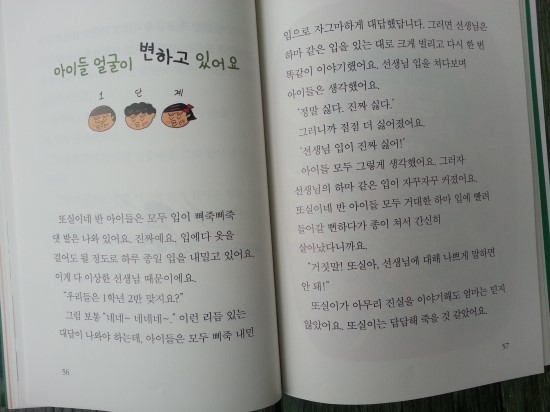 아이들 얼굴이 변하고 있어요
1 단계
또실이네 반 아이들은 모두 입이 삐죽삐죽
댓 발은 나와 있어요. 진짜예요. 입에다 옷을
걸어도 될 정도로 하루 종일 입을 내밀고 있어요.
이게 다 이상한 선생님 때문이에요.
"우리들은 1학년 2반 맞지요?"
그럼 보통 "네네~ 네네네~." 이런 리듬 있는
대답이 나와야 하는데, 아이들은 모두 삐죽 내민
56
입으로 자그마하게 대답했답니다. 그러면 선생님은
하마 같은 입을 있는 대로 크게 벌리고 다시 한 번
똑같이 이야기했어요. 선생님 입을 쳐다보며
아이들은 생각했어요.
'정말 싫다. 진짜 싫다.'
그러니까 점점 더 싫어졌어요.
'선생님 입이 진짜 싫어!'
아이들 모두 그렇게 생각했어요. 그러자
선생님의 하마 같은 입이 자꾸자꾸 커졌어요.
또실이네 반 아이들 모두 거대한 하마 입에 빨려
들어갈 뻔하다가 종이 쳐서 간신히
살아났다니까요.
"거짓말! 또실아, 선생님에 대해 나쁘게 말하면
안 돼!"
또실이가 아무리 진실을 이야기해도 엄마는 믿지
않았어요. 또실이는 답답해 죽을 것 같았어요.
57